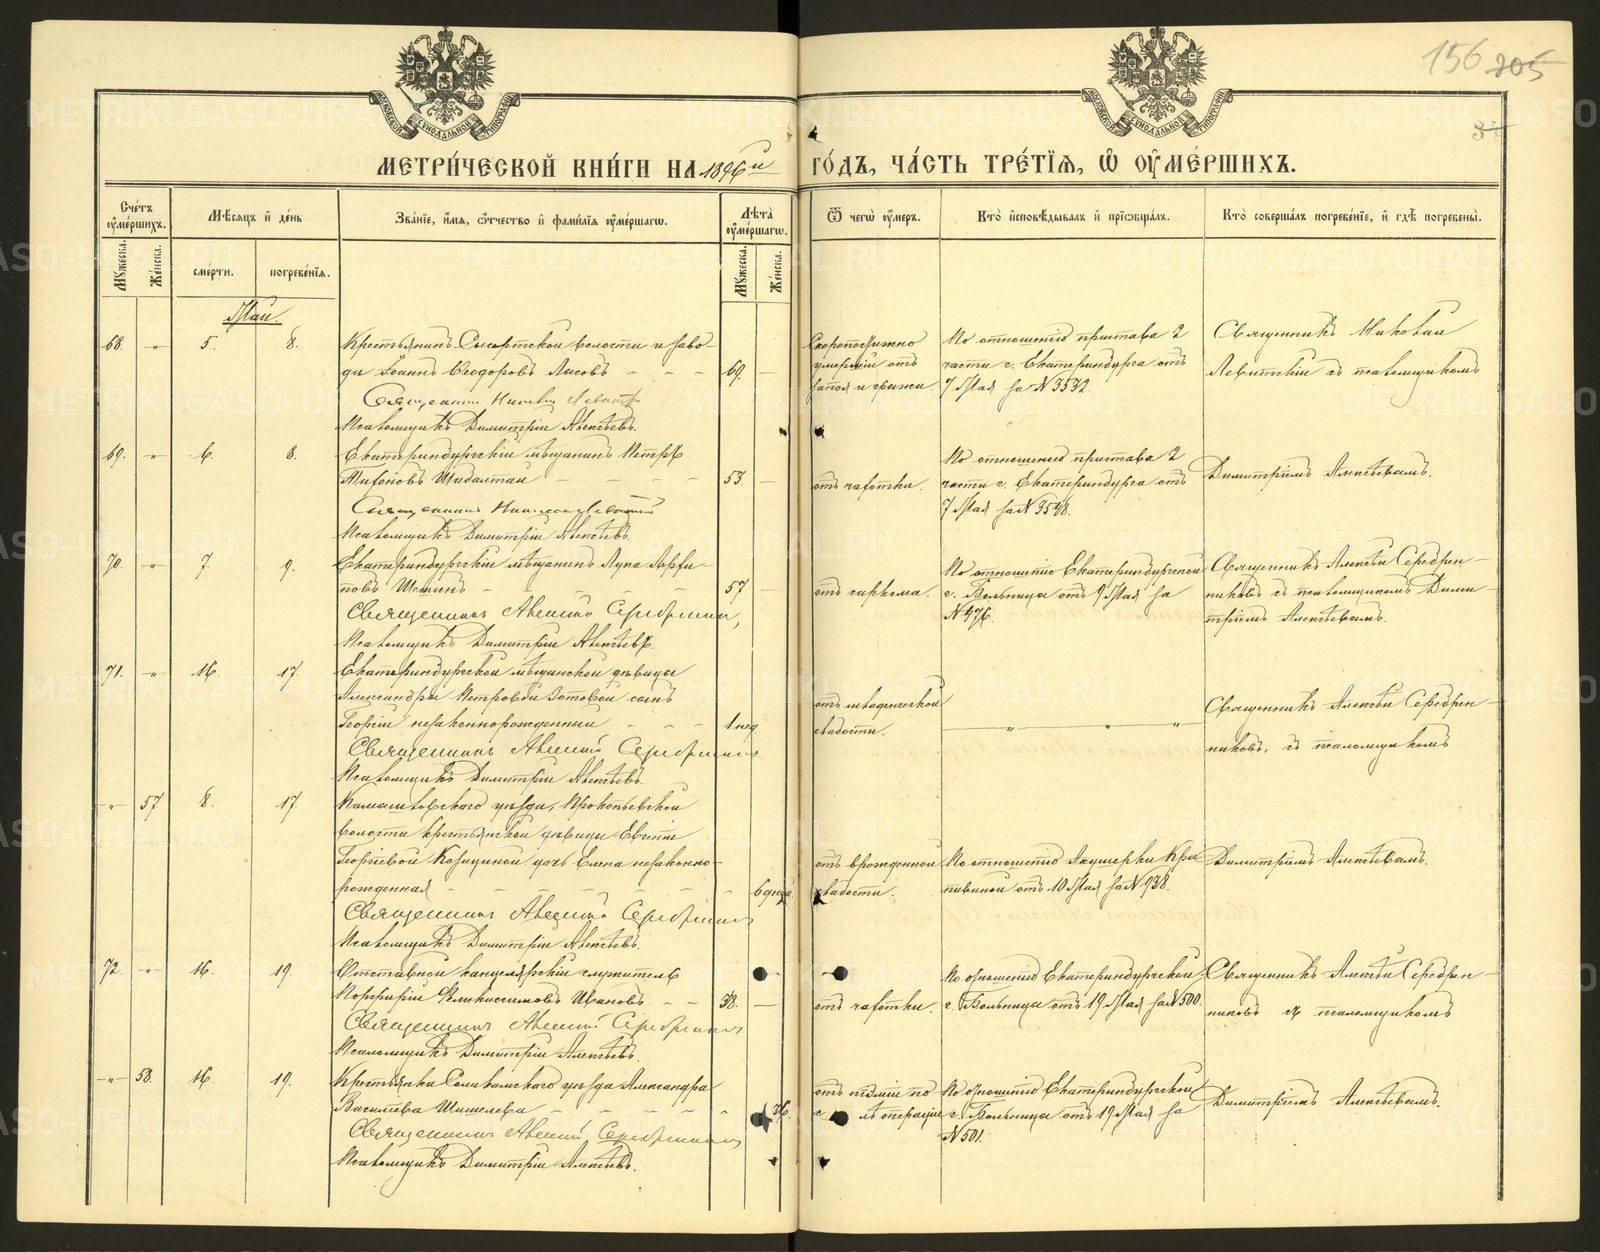 156 205
МЕТРИ́ЧЕСКОЙ КНИ́ГИ НА 1896й ГО́ДЪ, ЧА́СТЬ ТРЕ́ТІѦ, Ѽ ОУ҆МЕ́РШИХЪ.
Сче́тъ оу҆ме́ршихъ.
Мѣ́сѧцъ и҆ де́нь
Зва́нїе, и҆́мѧ, ѻ҆́тчество и҆ фами́лїѧ оу҆ме́ршагѡ.
Лѣ́та оу҆ме́ршагѡ.
Ѿ чегѡ̀ оу҆́меръ.
Кто̀ и҆сповѣ́дывалъ и҆ прїѡбща́лъ.
Кто̀ соверша́лъ погребе́нїе, и҆ гдѣ̀ погребены̀.
Мꙋ́жеска.
Же́нска.
сме́рти.
погребе́нїѧ.
Мꙋ́жеска.
Же́нска.
Май.
68. -"- 5. 8. Крестьянинъ Сысертской волости и заво-
да Іоаннъ ѲеодоровъЛасовъ - - - 69. —
Священникъ Николай Левитскій
Псаломщикъ Димитрій Алексѣевъ.
Скоропостижно
умершій отъ
запоя и грыжи.
По отношенію пристава 2
части г. Екатеринбурга отъ
7 Мая за № 3532.
Священникъ Николай
Левитскій съ псаломщикомъ
69. -"- 6. 8. Екатеринбургскій мѣщанинъ Петръ
Тихоновъ Шабалтай - - - - 53. —
Священникъ Николай Левитскій
Псаломщикъ Димитрій Алексѣевъ.
отъ чахотки.
По отношенію пристава 2
части г. Екатеринбурга отъ
7 Мая за № 3538.
Димитріемъ Алексѣевымъ.
70. -"- 7. 9. Екатеринбургскій мѣщанинъ Лука
новъ - 57 —
Священникъ Алексій Серебренниковъ,
Псаломщикъ Димитрій Алексѣевъ.
отъ саркома.
По отношенію Екатеринбургской
г. Больницы отъ 9 Мая за
№ 476.
Священникъ Алексѣй Серебрен-
никовъ съ псаломщикомъ Дими-
тріемъ Алексѣевымъ.
71. -"- 16. 17. Екатеринбургской мѣщанской дѣвицы
Александры Петровой Зотовой сынъ
Георгій незаконнорожденный - - - 1 нед.
Священникъ Алексій Серебренниковъ
Псаломщикъ Димитрій Алексѣевъ.
отъ младенческой
слабости.
—"—"—"—
Священникъ Алексѣй Серебрен-
никовъ, съ псаломщикомъ
-"- 57. 8. 17. Камышловскаго уѣзда, Прокопьевской
волости крестьянской дѣвицы Евгеніи
Георгіевой дочь Елена незаконно-
рожденная - - - - - - 6 дней
Священникъ Алексій Серебренниковъ
Псаломщикъ Димитрій Алексѣевъ.
отъ врожденной
слабости.
По отношенію Акушерки Кра-
пивиной отъ 10 Мая за № 938.
Димитріемъ Алексѣевымъ.
72. -"- 16. 19. Отставной канцелярскій служитель
Порфирій Ивановъ - - 38. —
Священникъ Алексій Серебренниковъ
Псаломщикъ Димитрій Алексѣевъ.
отъ чахотки.
По отношенію Екатеринбургской
г. Больницы отъ 19 Мая за № 500.
Священникъ Алексѣй Серебрен-
никовъ съ псаломщикомъ
-"- 58. 16. 19. Крестьянка Соликамскаго уѣзда Александра
Василіева Шишелева - - - - - 36.
Священникъ Алексій Серебренниковъ
Псаломщикъ Димитрій Алексѣевъ.
отъ піэміи по
слѣ операціи
По отношенію Екатеринбургской
г. Больницы отъ 19 Мая за
№ 501.
Димитріемъ Алексѣевымъ.